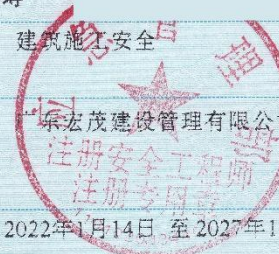 建筑施工安全
广东宏茂建设管理有限公
注册安全工程师
注册专用章
2022年1月14日 至 2027年1